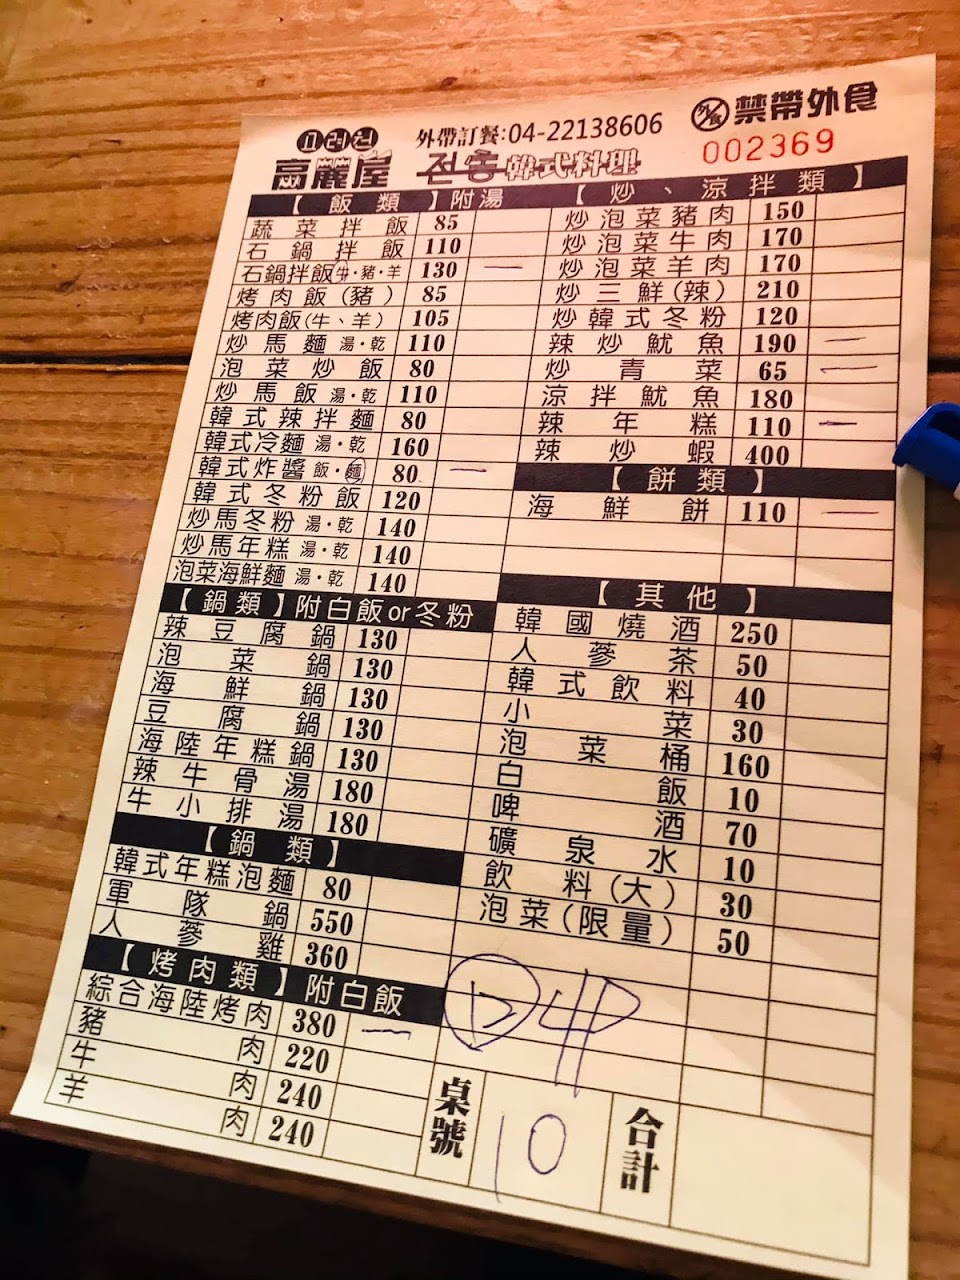 고려원
高麗屋
外帶訂餐:04-22138606
전통 韓式料理
外食 禁帶外食
002369
【飯類】附湯
蔬菜拌飯 85
石鍋拌飯 110
石鍋拌飯 牛·豬·羊 130 一
烤肉飯(豬) 85
烤肉飯(牛、羊) 105
炒馬麵 湯·乾 110
泡菜炒飯 80
炒馬飯 湯·乾 110
韓式辣拌麵 80
韓式冷麵 湯·乾 160
韓式炸醬 飯·麵 80 一
韓式冬粉飯 120
炒馬冬粉 湯·乾 140
炒馬年糕 湯·乾 140
泡菜海鮮麵 湯·乾 140
【鍋類】附白飯or冬粉
辣豆腐鍋 130
泡菜鍋 130
海鮮鍋 130
豆腐鍋 130
海陸年糕鍋 130
辣牛骨湯 180
牛小排湯 180
【鍋類】
韓式年糕泡麵 80
軍隊鍋 550
人蔘雞 360
【烤肉類】附白飯
綜合海陸烤肉 380 一
豬肉 220
牛肉 240
羊肉 240
【炒、涼拌類】
炒泡菜豬肉 150
炒泡菜牛肉 170
炒泡菜羊肉 170
炒三鮮(辣) 210
炒韓式冬粉 120
辣炒魷魚 190 一
炒青菜 65 一
涼拌魷魚 180
辣年糕 110 一
辣炒蝦 400
【餅類】
海鮮餅 110 一
【其他】
韓國燒酒 250
人蔘茶 50
韓式飲料 40
小菜 30
泡菜桶 160
白飯 10
啤酒 70
礦泉水 10
飲料(大) 30
泡菜(限量) 50
4P
桌號 10
合計